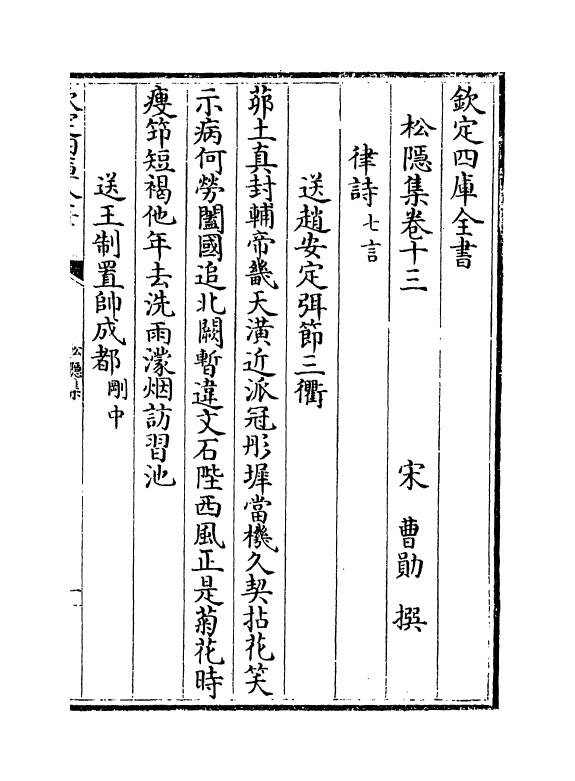 欽定四庫全書
松隠集卷十三
宋 曹勛 撰
律詩七言
送趙安定弭節三衢
茆土真封輔帝畿天潢近派冠彤墀當機久契拈花笑
示病何勞闔國追北闕暫違文石陛西風正是菊花時
痩笻短褐他年去洗雨濛烟訪習池
送王制置帥成都剛中